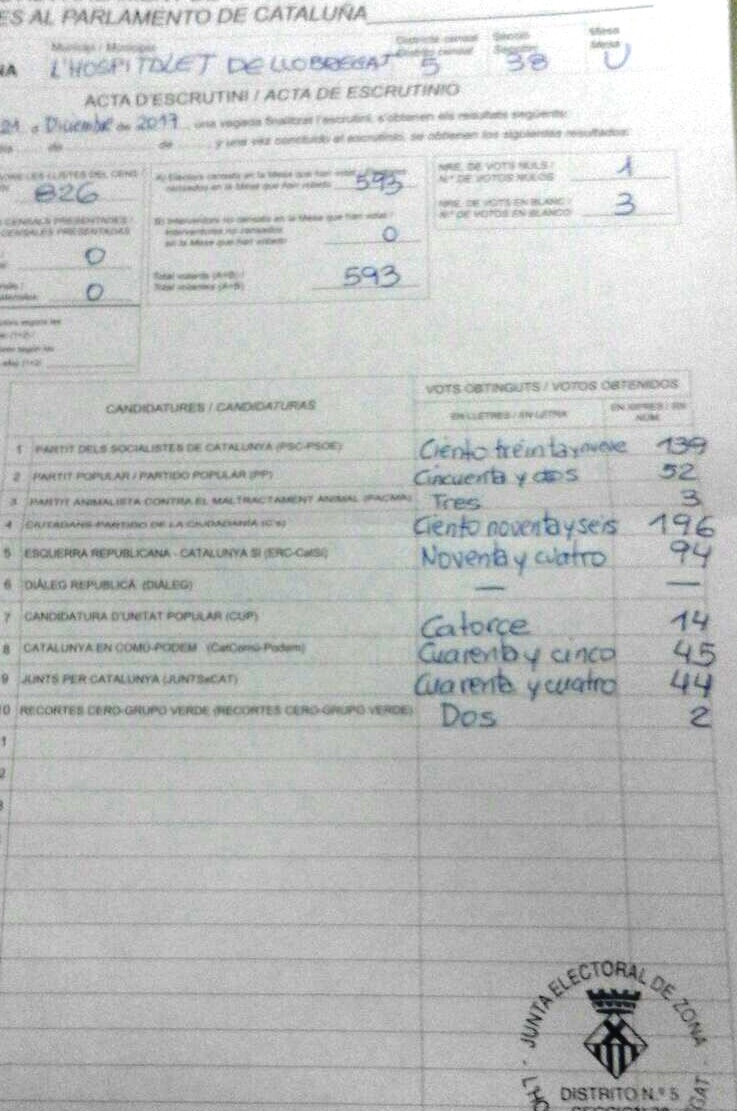 ES AL PARLAMENTO DE CATALUÑA
Municipi / Municipio
Districte censal
Distrito censal
Secció
Sección
Mesa
Mesa
NA L'HOSPITALET DE LLOBREGAT 5 38 U
ACTA D'ESCRUTINI / ACTA DE ESCRUTINIO
21 a Diciembre de 2017 una vegada finalitzat l'escrutini, s'obtenen els resultats següents:
de de y una vez concluido el escrutinio, se obtienen los siguientes resultados:
826
CENSALS PRESENTADES /
CENSALES PRESENTADAS
0
0
A) Electors censats en la Mesa que han votat /
censados en la Mesa que han votado 593
B) Interventors no censats en la Mesa que han votat /
Interventores no censados
en la Mesa que han votado 0
Total votants (A+B) /
Total votantes (A+B) 593
NRE. DE VOTS NULS /
N.º DE VOTOS NULOS 1
NRE. DE VOTS EN BLANC /
N.º DE VOTOS EN BLANCO 3
CANDIDATURES / CANDIDATURAS
VOTS OBTINGUTS / VOTOS OBTENIDOS
EN LLETRES / EN LETRA
EN XIFRES / EN NÚM.
1 PARTIT DELS SOCIALISTES DE CATALUNYA (PSC-PSOE) Ciento treinta y nueve 139
2 PARTIT POPULAR / PARTIDO POPULAR (PP) Cincuenta y dos 52
3 PARTIT ANIMALISTA CONTRA EL MALTRACTAMENT ANIMAL (PACMA) Tres 3
4 CIUTADANS-PARTIDO DE LA CIUDADANÍA (C's) Ciento noventa y seis 196
5 ESQUERRA REPUBLICANA - CATALUNYA SÍ (ERC-CatSí) Noventa y cuatro 94
6 DIÀLEG REPUBLICÀ (DIÀLEG) — —
7 CANDIDATURA D'UNITAT POPULAR (CUP) Catorce 14
8 CATALUNYA EN COMÚ-PODEM (CatComú-Podem) Cuarenta y cinco 45
9 JUNTS PER CATALUNYA (JUNTSxCAT) Cuarenta y cuatro 44
10 RECORTES CERO-GRUPO VERDE (RECORTES CERO-GRUPO VERDE) Dos 2
1
2
3
JUNTA ELECTORAL DE ZONA
DISTRITO N.º 5